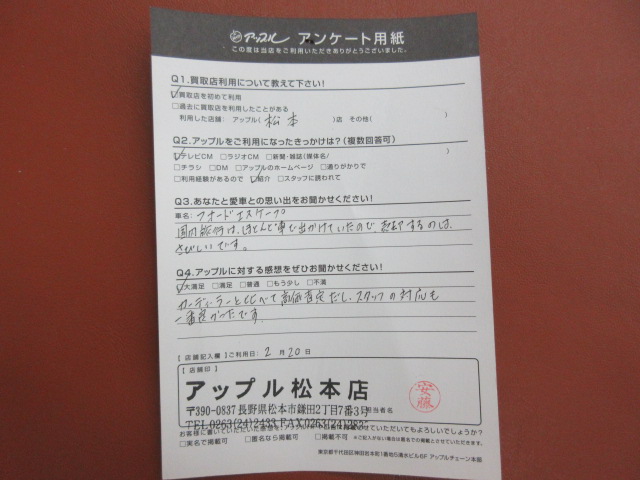 アップル アンケート用紙
この度は当店をご利用いただきありがとうございました。
Q1.買取店利用について教えて下さい!
☑買取店を初めて利用
□過去に買取店を利用したことがある
利用した店舗：アップル( 松本 )店 その他( )
Q2.アップルをご利用になったきっかけは？(複数回答可)
☑テレビCM □ラジオCM □新聞・雑誌(媒体名/ )
□チラシ □DM □アップルのホームページ □通りがかりで
□利用経験があるので ☑紹介 □スタッフに誘われて
Q3.あなたと愛車との思い出をお聞かせください!
車名：フォードエスケープ
国内旅行は、ほとんど車で出かけていたので、売却するのは、
さびしいです。
Q4.アップルに対する感想をぜひお聞かせください!
☑大満足 □満足 □普通 □もう少し □不満
カーディーラーと比べて高価査定だし、スタッフの対応も
一番良かったです。
【店舗記入欄】ご利用日： 2 月 20 日
【店舗印】
アップル松本店
〒390-0837 長野県松本市鎌田2丁目7番3号
担当者名
安藤
TEL0263(24)2433 FAX0263(24)
お客様に書いていただいた感想を、アップル
いただいてもよろしいでしょうか？
□実名で掲載可 □匿名なら掲載可 □掲載不可 ※ご記入がない場合は匿名での掲載とさせていただきます。
東京都千代田区神田岩本町1番地5清水ビル6F アップルチェーン本部